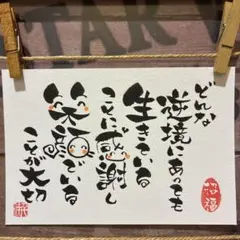 どんな
逆境にあっても
生きている
ことに感謝し
笑顔でいる
ことが大切
招福
STAR W